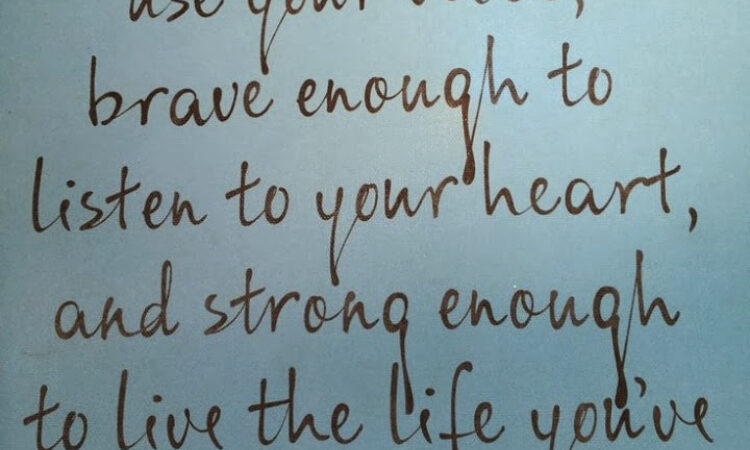 use your
brave enough to
listen to your heart,
and strong enough
to live the life you've